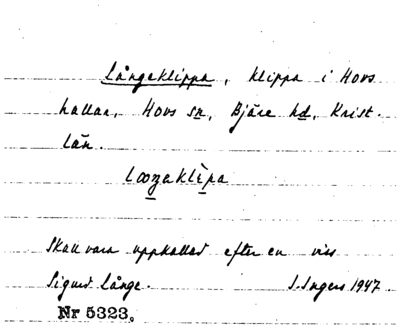 Långeklippa, klippa i Hovs
hallar, Hovs sn, Bjäre hd, Krist.
län.
Skall vara uppkallad efter en viss
Sigurd Långe. S. Ingers 1947
Nr 5323.